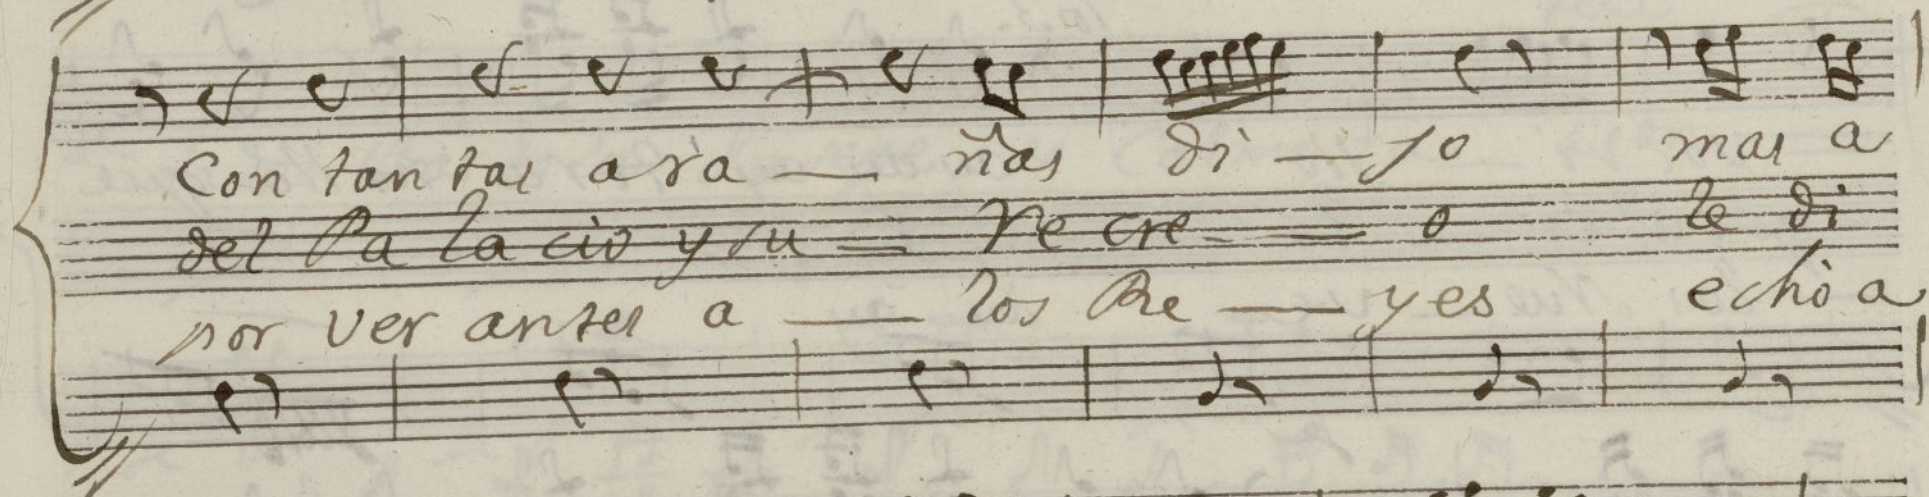 Con tan tas ara — ñas di — jo mas a
del Pa la cio y su — Re cre — o le di
por ver antes a — los Re — yes echò a